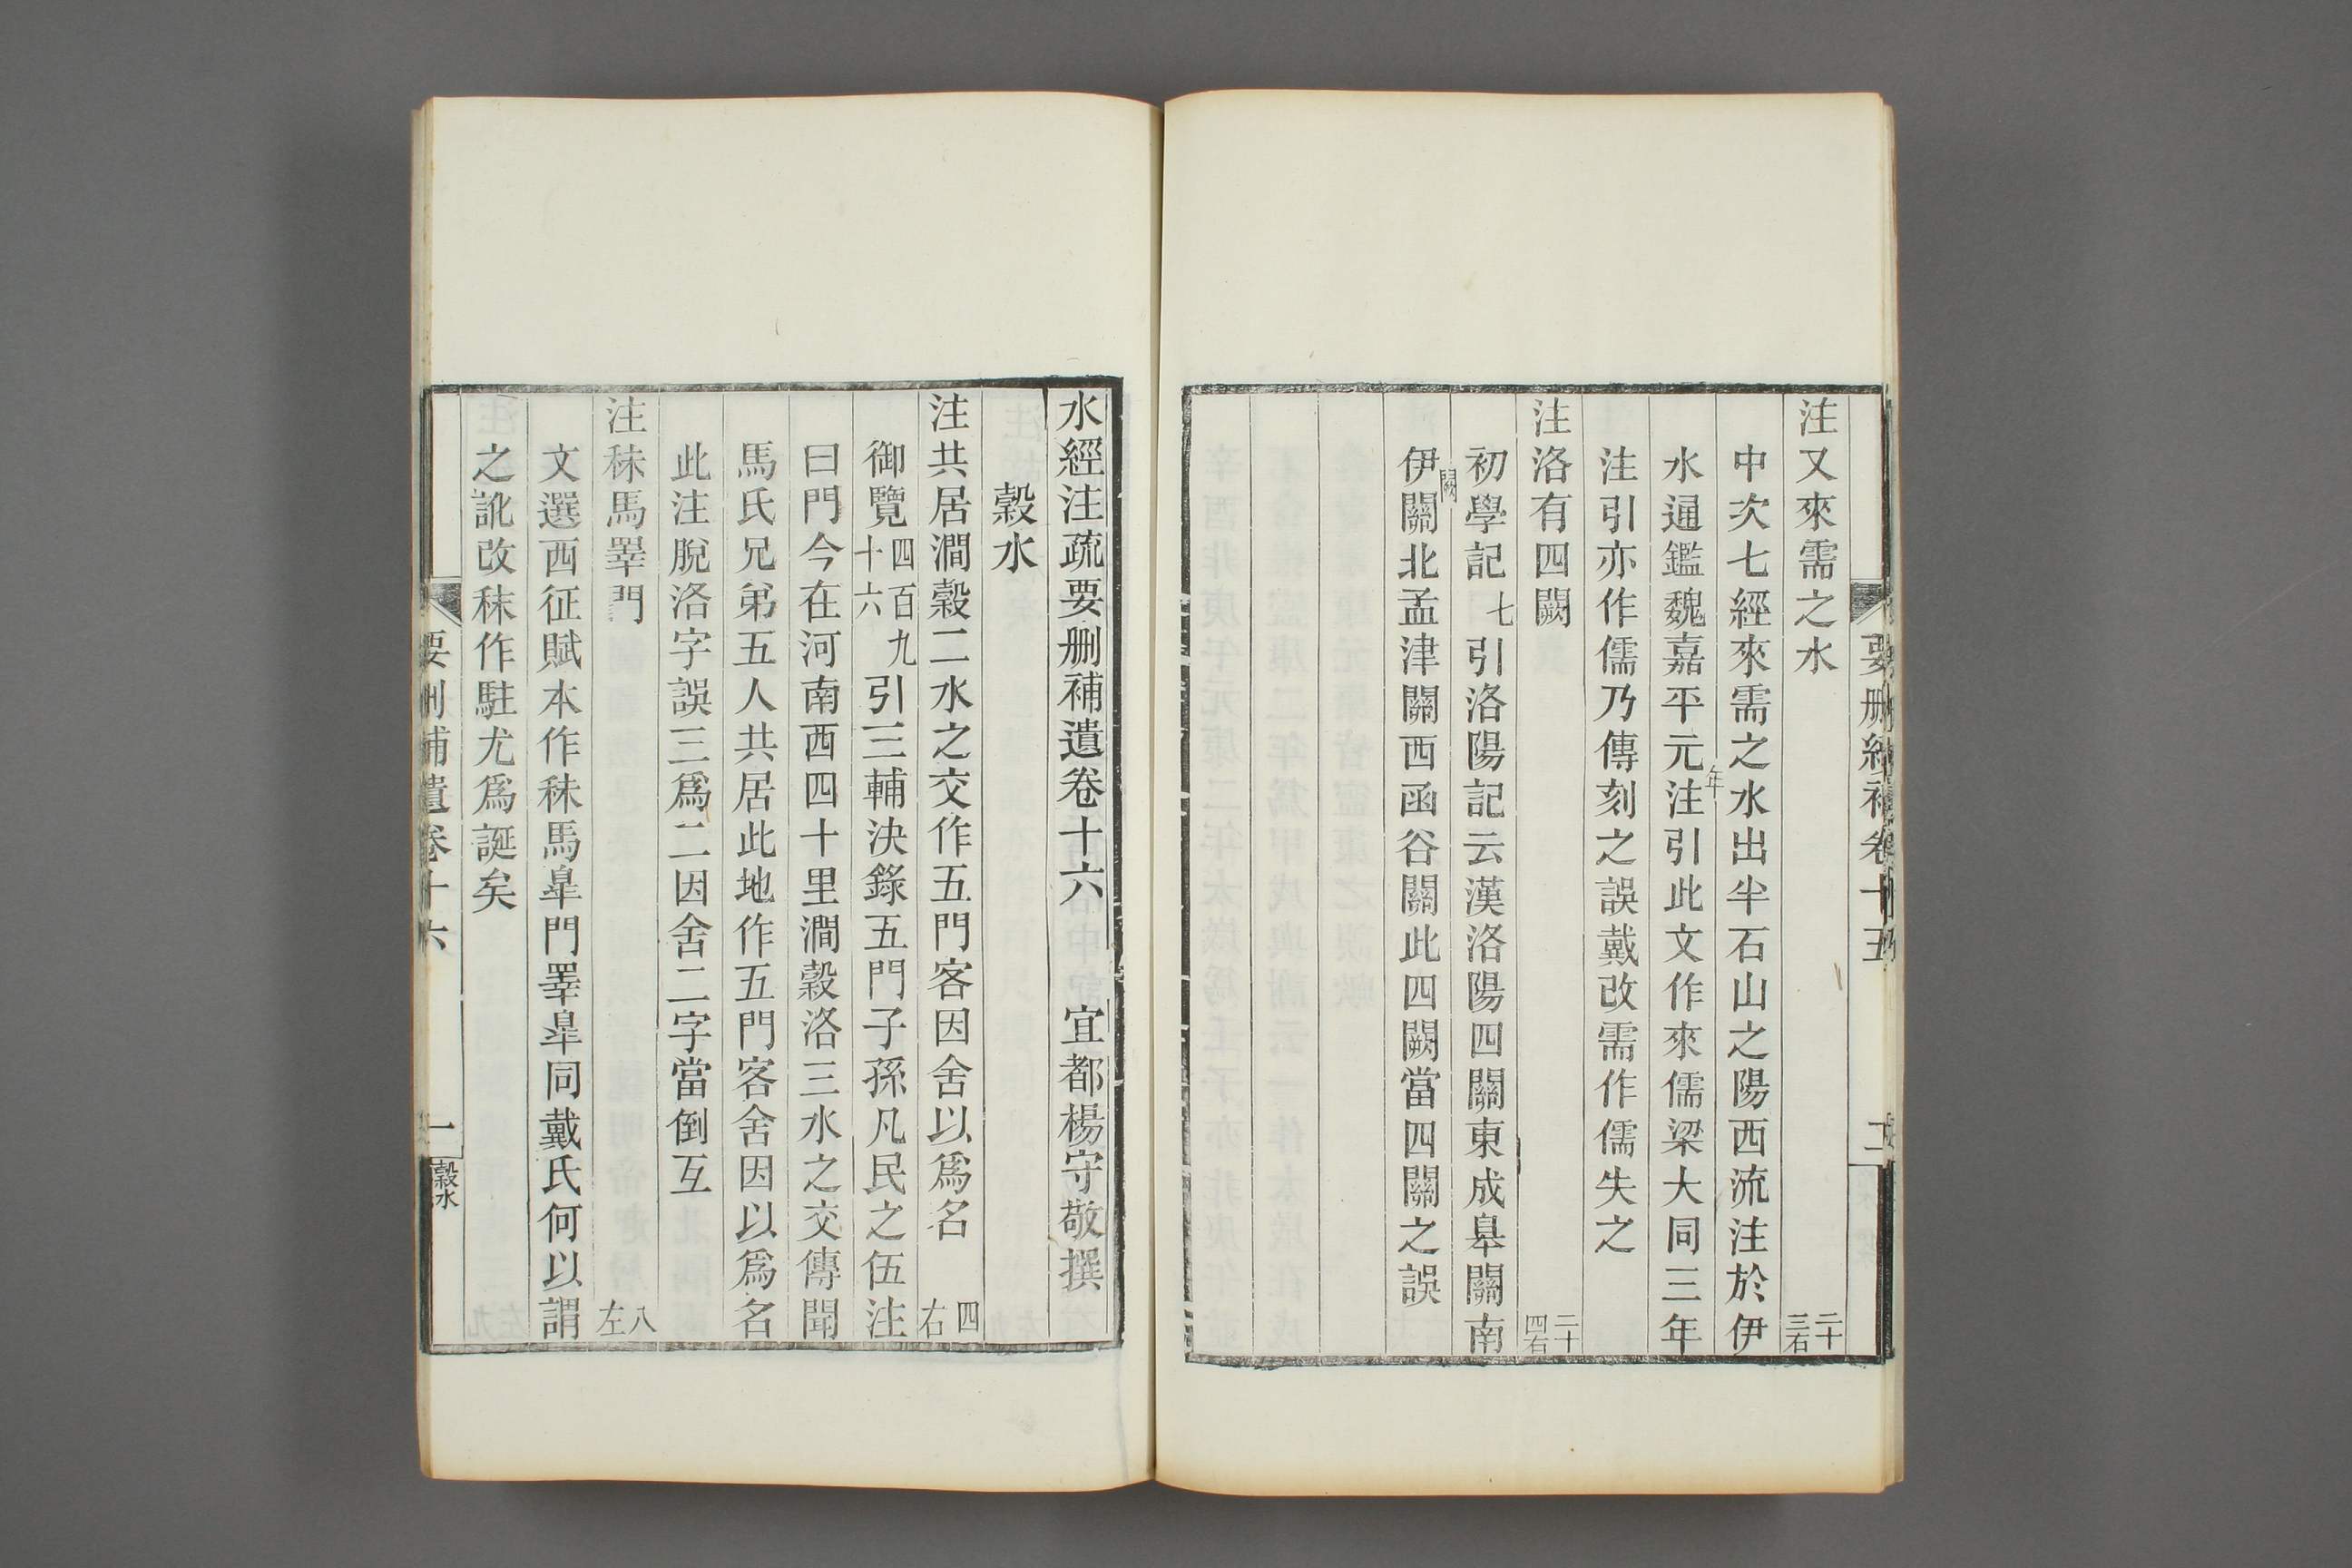 注又來需之水 二十三右
中次七經來需之水出半石山之陽西流注於伊
水通鑑魏嘉平元年注引此文作來儒梁大同三年
注引亦作儒乃傳刻之誤戴改需作儒失之
注洛有四闕 二十四右
初學記七引洛陽記云漢洛陽四關東成皋關南
伊闕關北孟津關西函谷關此四闕當四關之誤
水經注疏要刪補遺卷十六 宜都楊守敬撰
穀水
注共居澗穀二水之交作五門客因舍以爲名 四右
御覽四百九十六引三輔決錄五門子孫凡民之伍注
曰門今在河南西四十里澗穀洛三水之交傳聞
馬氏兄弟五人共居此地作五門客舍因以爲名
此注脫洛字誤三爲二因舍二字當倒互
注秣馬睪門 八左
文選西征賦本作秣馬臯門睪臯同戴氏何以謂
之訛改秣作駐尤爲誕矣
要刪補遺卷十六 一 穀水